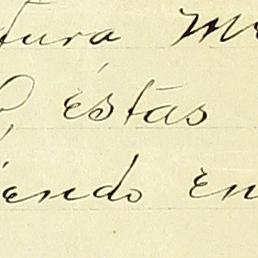 tura Me
éstas
iendo en